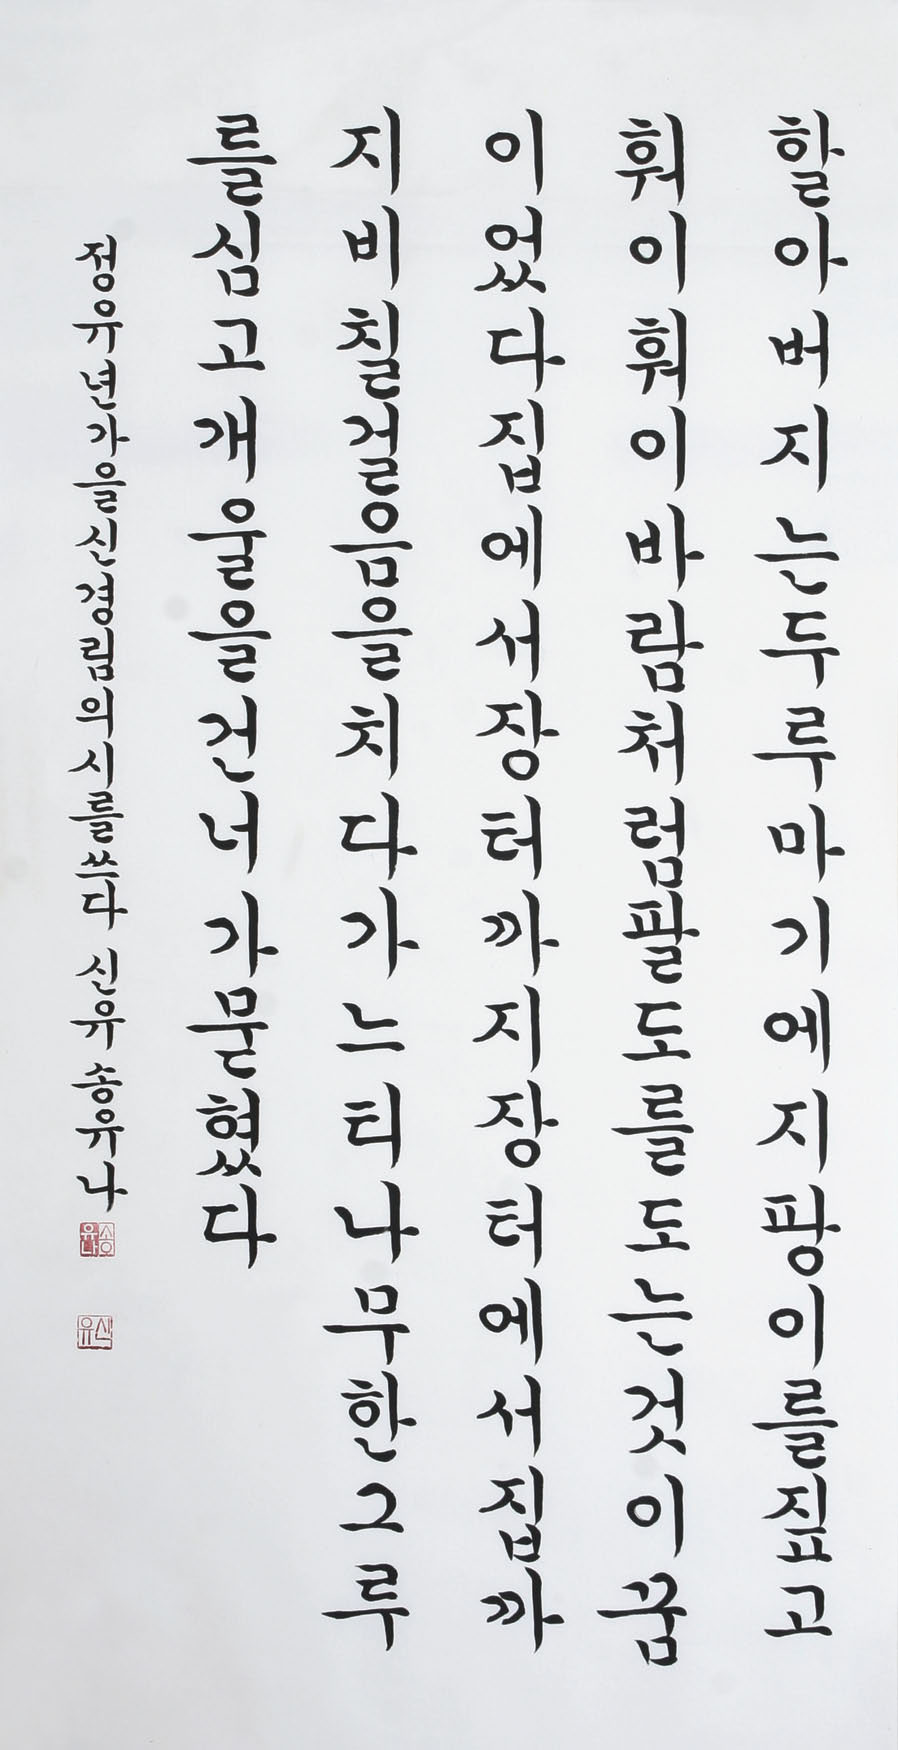 할아버지는두루마기에지팡이를짚고
훠이훠이바람처럼팔도를도는것이꿈
이었다집에서장터까지장터에서집까
지비칠걸음을치다가느티나무한그루
를심고개울을건너가묻혔다
정유년가을신경림의시를쓰다 신유 송유나
송유나
신유